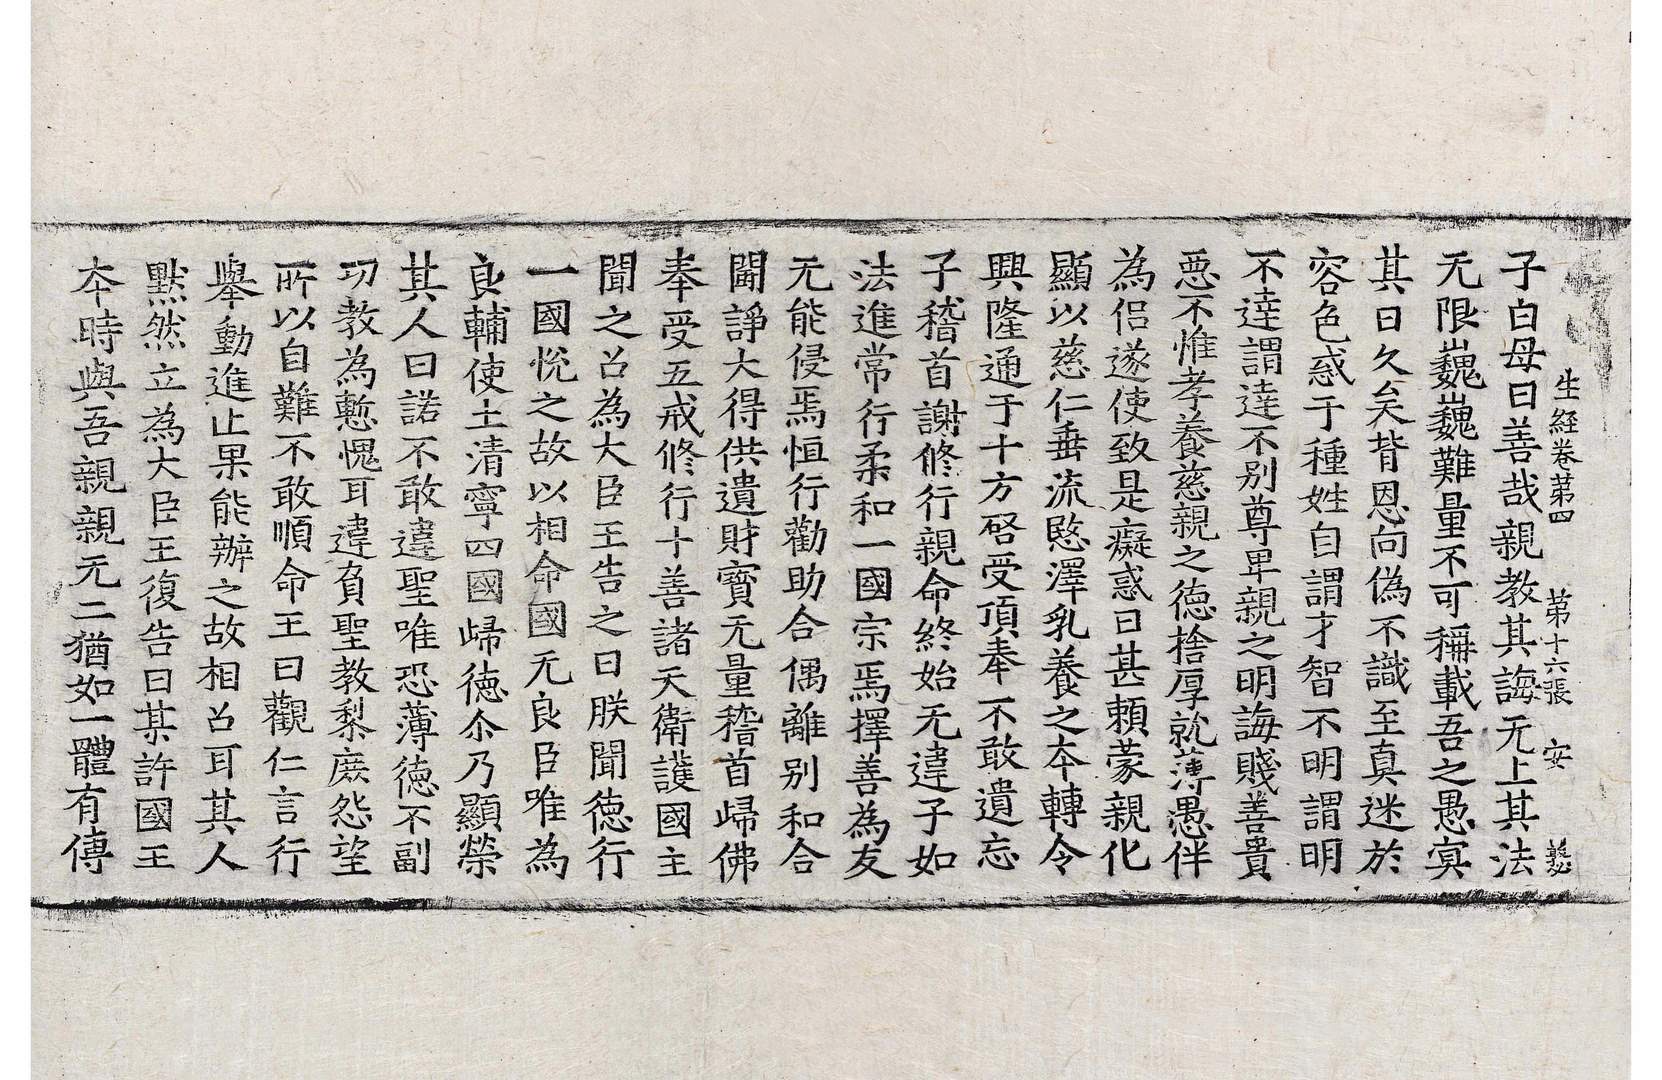 生經卷第四 第十六張 安
子白母曰善哉親教其誨无上其法
无限巍巍難量不可稱載吾之愚冥
其日久矣背恩向僞不識至真迷於
容色惑于種姓自謂才智不明謂明
不達謂達不别尊卑親之明誨賤善貴
惡不惟孝養慈親之德捨厚就薄愚伴
為侶遂使致是癡惑日甚頼蒙親化
顯以慈仁垂流愍澤乳養之夲轉令
興隆通于十方啓受頂奉不敢遺忘
子稽首謝修行親命終始无違子如
法進常行柔和一國宗焉擇善為友
无能侵焉恒行勸助合偶離别和合
鬪諍大得供遺財寶无量稽首歸佛
奉受五戒修行十善諸天衛護國主
聞之召為大臣王告之曰朕聞德行
一國悅之故以相命國无良臣唯為
良輔使土清寧四國歸德尒乃顯榮
其人曰諾不敢違聖唯恐薄德不副
功教為慙愧耳違負聖教黎庶怨望
所以自難不敢順命王曰觀仁言行
舉動進止果能辦之故相召耳其人
黙然立為大臣王復告曰某許國王
夲時與吾親親无二猶如一體有傳